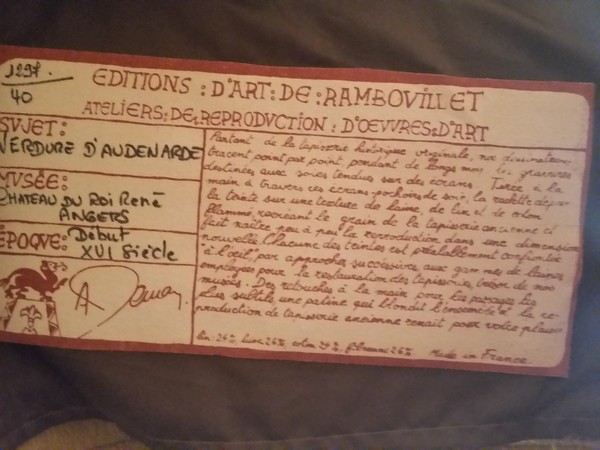 1298.
40
EDITIONS : D'ART : DE : RAMBOVILLET
ATELIERS : DE : REPRODVCTION : D'OEVVRES : D'ART
SVJET :
VERDURE D'AUDENARDE
MVSÉE :
CHATEAU DU ROI René
ANGERS
EPOQVE : Début
XVI Siècle
Partant de la tapisserie historique originale, nos dessinateurs
tracent point par point, pendant de longs mois, les gravures
destinées aux soies tendues sur des écrans. Tirée à la
main à travers ces écrans-pochoirs de soie, la raclette dépose
la teinte sur une texture de laine, de lin et de coton
flammé, recréant le grain de la tapisserie ancienne et
fait naître peu à peu la reproduction dans une dimension
nouvelle. Chacune des teintes est préalablement confrontée
"à l'oeil", par approches successives aux gammes de laines
employées pour la restauration des tapisseries trésor de nos
musées. Des retouches à la main pour les passages les
plus subtils, une patine qui blondit l'ensemble et la re-
production de tapisserie ancienne renaît pour votre plaisir
lin : 24% laine 26% coton 24% fibranne 26% Made in France.